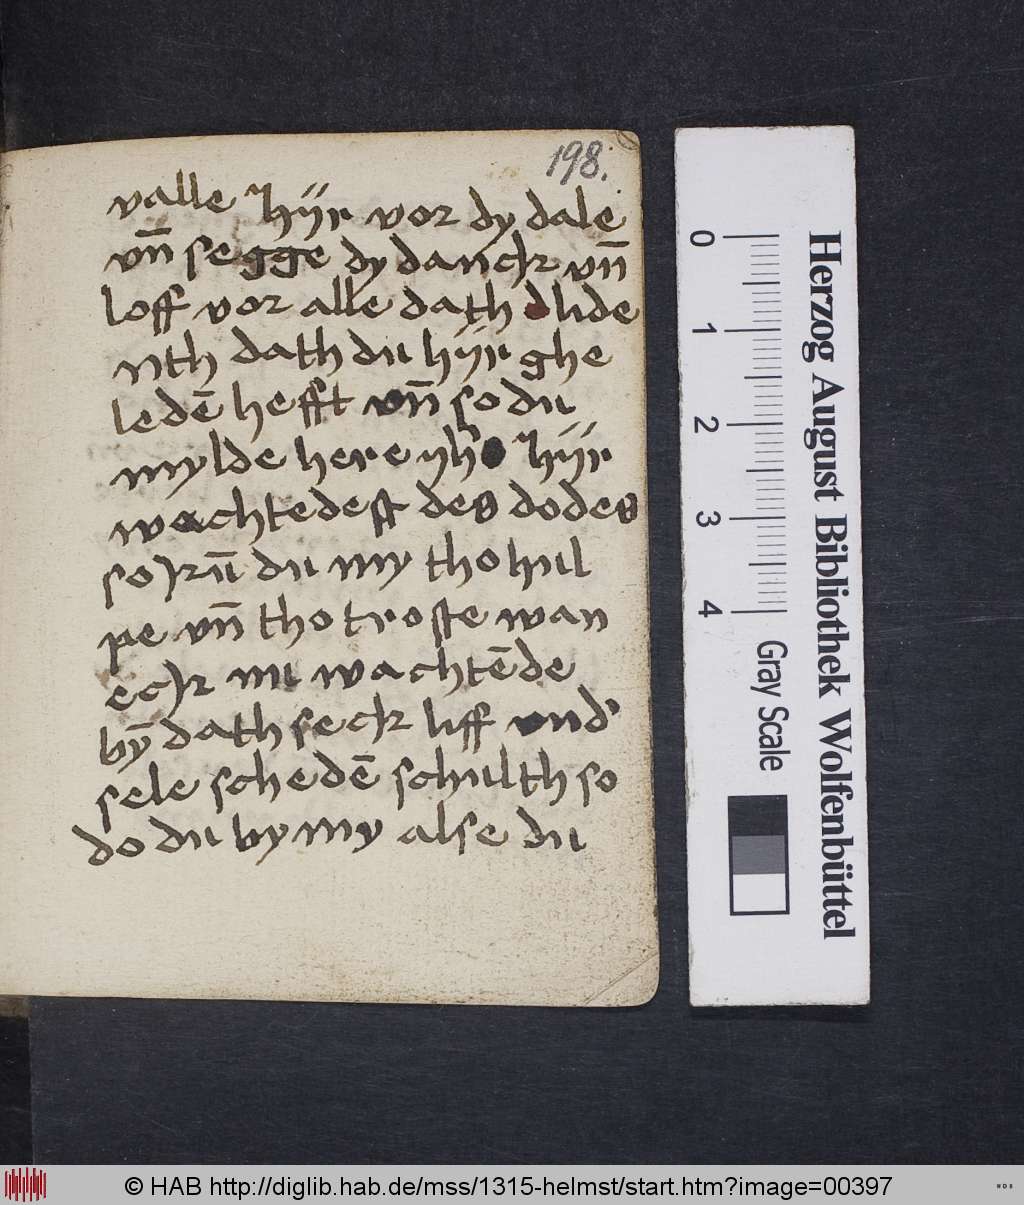 198.
valle hyr vor dy dale
vn̄ segge dy danck vn̄
loff vor alle dath lide
nth dath du hyr ghe
ledē hefft vn̄ so du
mylde here yh̄s hyr
wachtedest des dodes
so kū du my tho hul
pe vn̄ tho troste wan
eck mi wachtēde
bȳ dath seck liff vnd'
sele schedē schulth so
do du by my alse du
Herzog August Bibliothek Wolfenbüttel
0 1 2 3 4 Gray Scale
© HAB http://diglib.hab.de/mss/1315-helmst/start.htm?image=00397